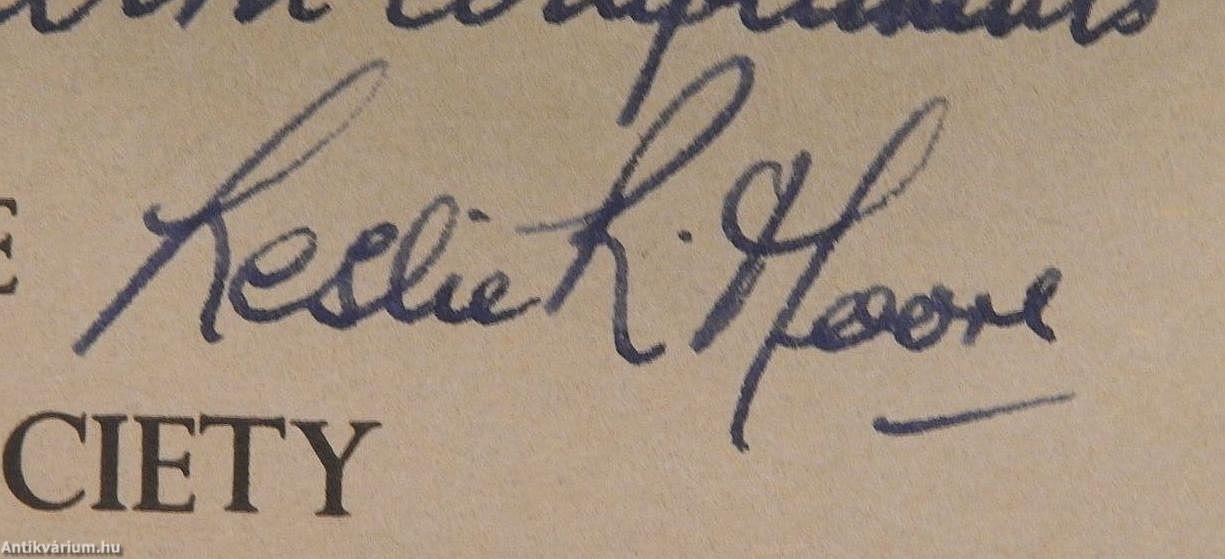 compliments
Leslie R. Moore
E
CIETY
Antikvárium.hu